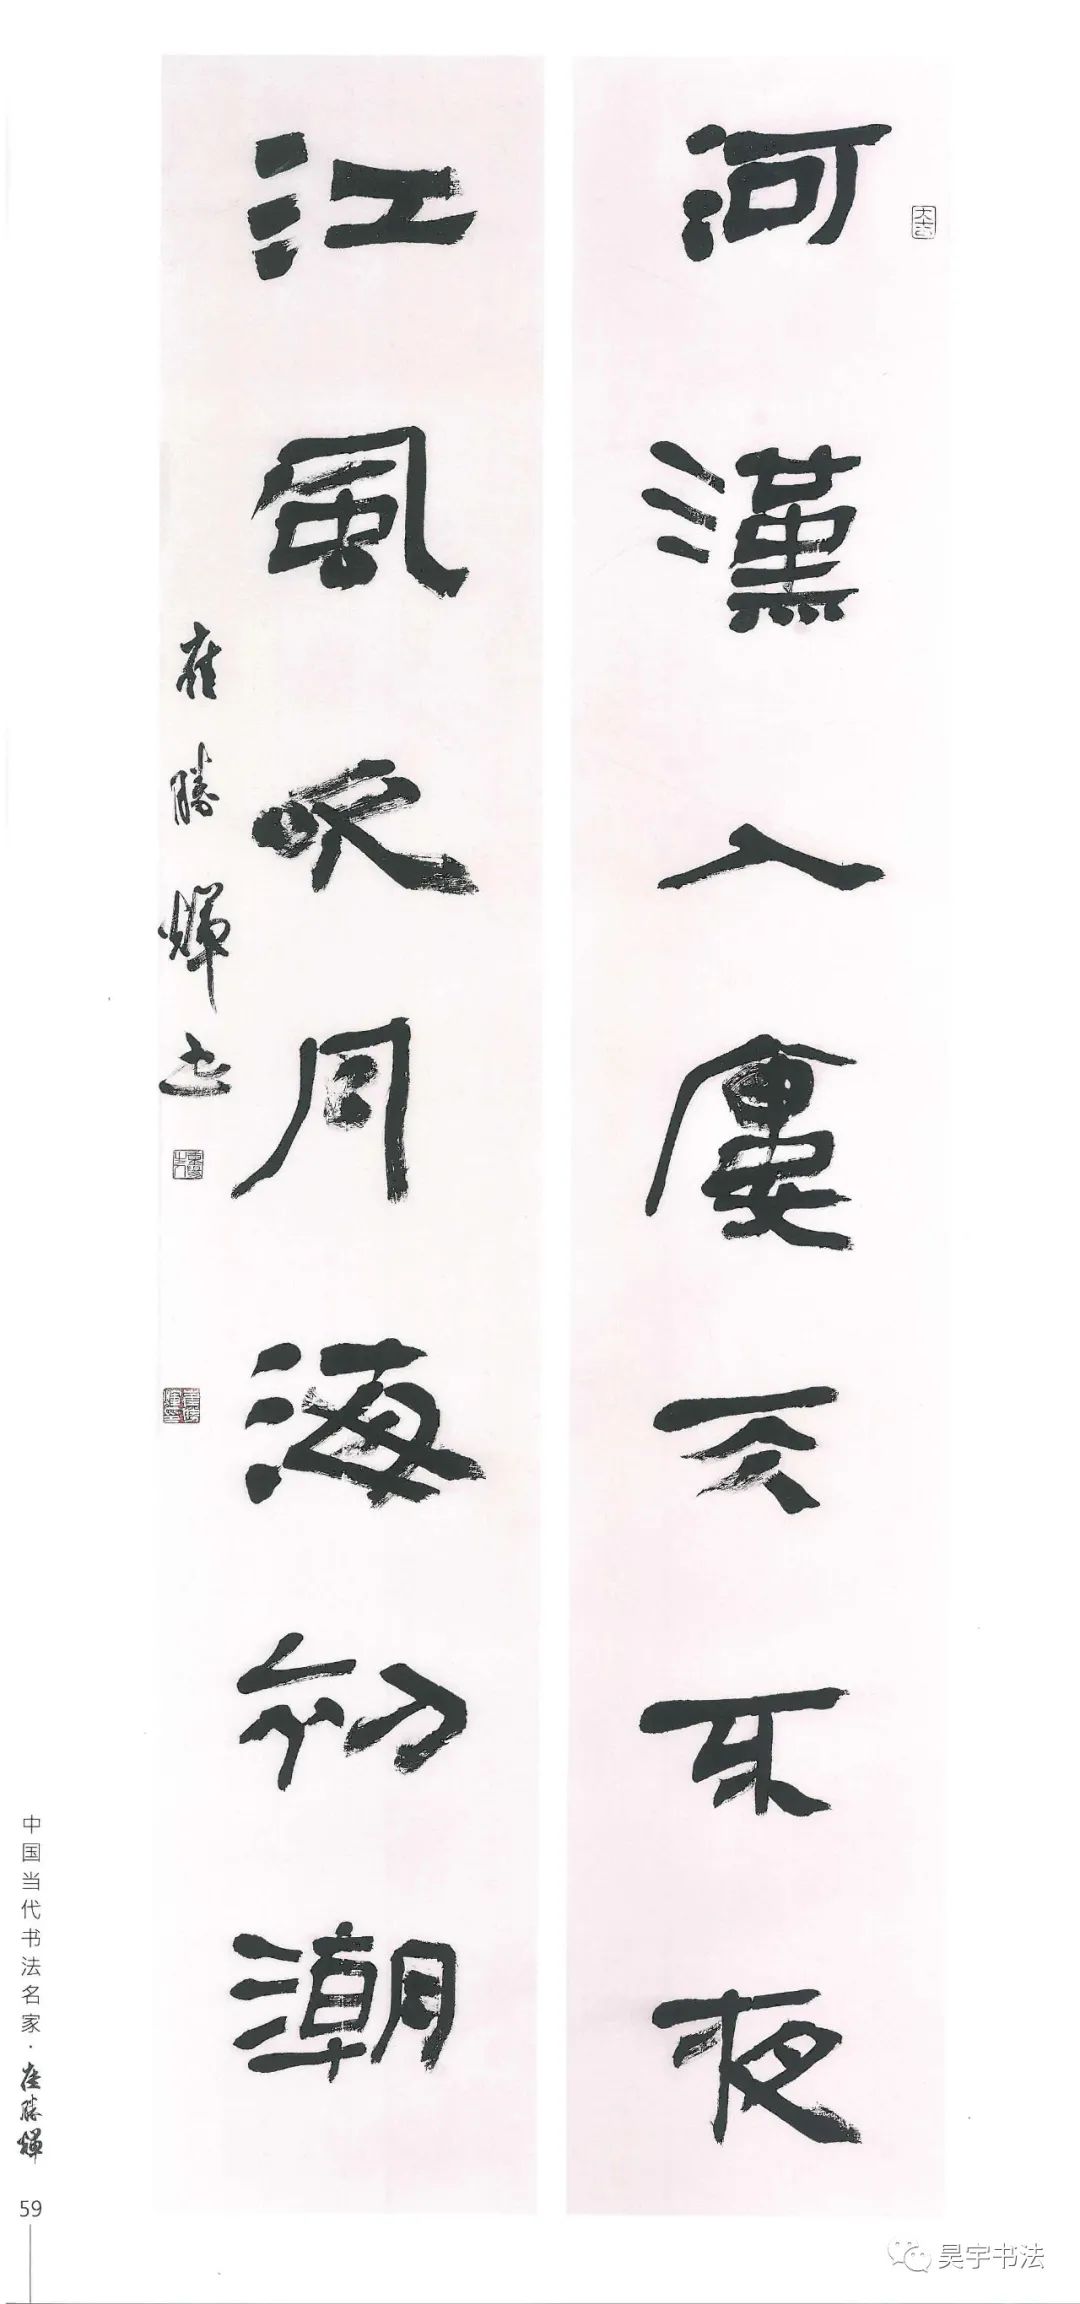 河漢入廔天不夜
江風吹月海初潮
崔勝煇书
中国当代书法名家·崔勝煇
59
昊宇书法